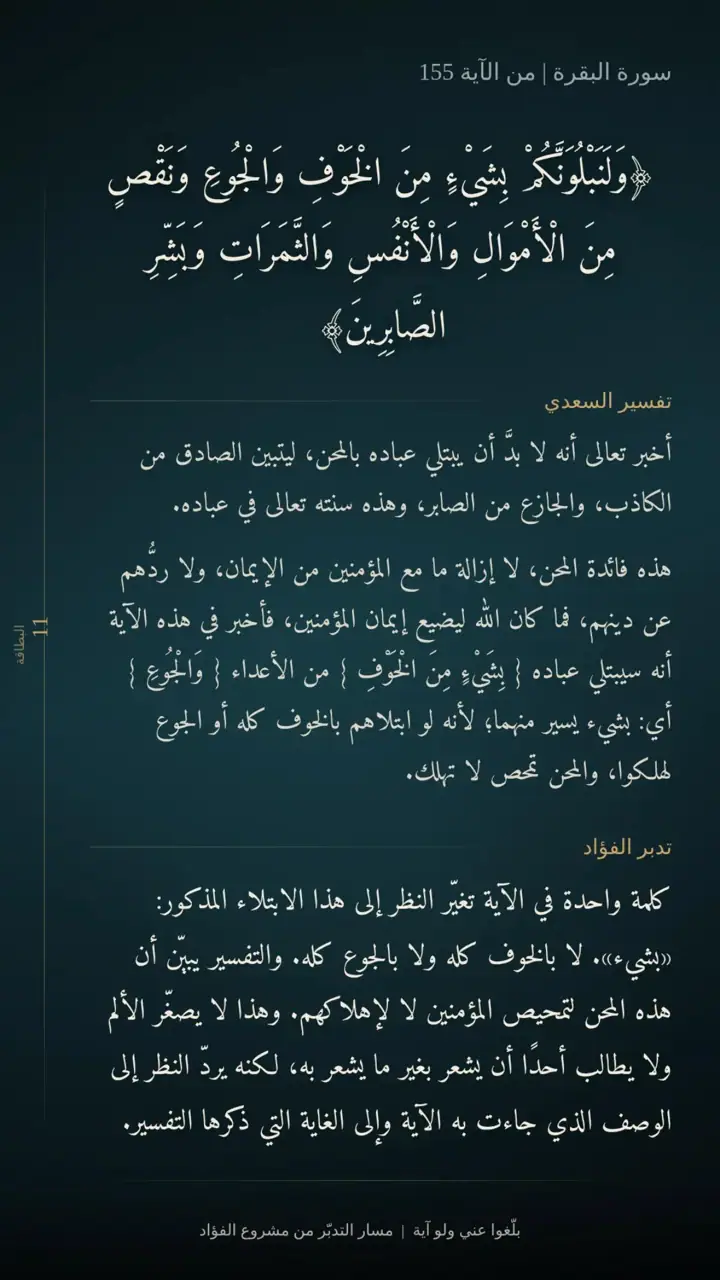 سورة البقرة | من الآية 155
﴿وَلَنَبْلُوَنَّكُمْ بِشَيْءٍ مِنَ الْخَوْفِ وَالْجُوعِ وَنَقْصٍ
مِنَ الْأَمْوَالِ وَالْأَنْفُسِ وَالثَّمَرَاتِ وَبَشِّرِ
الصَّابِرِينَ﴾
تفسير السعدي
أخبر تعالى أنه لا بدَّ أن يبتلي عباده بالمحن، ليتبين الصادق من
الكاذب، والجازع من الصابر، وهذه سنته تعالى في عباده.
هذه فائدة المحن، لا إزالة ما مع المؤمنين من الإيمان، ولا ردُّهم
عن دينهم، فما كان الله ليضيع إيمان المؤمنين، فأخبر في هذه الآية
أنه سيبتلي عباده { بِشَيْءٍ مِنَ الْخَوْفِ } من الأعداء { وَالْجُوعِ }
أي: بشيء يسير منهما؛ لأنه لو ابتلاهم بالخوف كله أو الجوع
لهلكوا، والمحن تمحص لا تهلك.
11
البطاقة
تدبر الفؤاد
كلمة واحدة في الآية تغيّر النظر إلى هذا الابتلاء المذكور:
«بشيء». لا بالخوف كله ولا بالجوع كله. والتفسير يبيّن أن
هذه المحن لتمحيص المؤمنين لا لإهلاكهم. وهذا لا يصغّر الألم
ولا يطالب أحدًا أن يشعر بغير ما يشعر به، لكنه يردّ النظر إلى
الوصف الذي جاءت به الآية وإلى الغاية التي ذكرها التفسير.
بلّغوا عني ولو آية | مسار التدبّر من مشروع الفؤاد